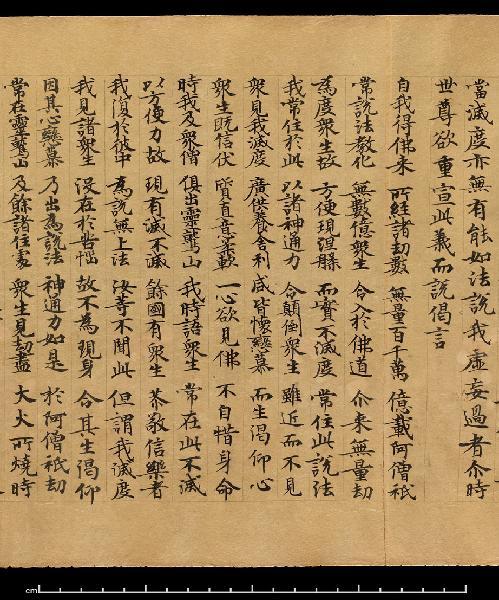 當滅度亦無有能如法說我虛妄過者尒時
世尊欲重宣此義而說偈言
自我得佛来 所經諸劫數 無量百千萬 億載阿僧祇
常說法教化 無數億衆生 令入於佛道 尒来無量劫
為度衆生故 方便現涅槃 而實不滅度 常住此說法
我常住於此 以諸神通力 令顛倒衆生 雖近而不見
衆見我滅度 廣供養舍利 咸皆懷戀慕 而生渴仰心
衆生既信伏 質直意柔軟 一心欲見佛 不自惜身命
時我及衆僧 俱出靈鷲山 我時語衆生 常在此不滅
以方便力故 現有滅不滅 餘國有衆生 恭敬信樂者
我復於彼中 為說無上法 汝等不聞此 但謂我滅度
我見諸衆生 没在於苦惱 故不為現身 令其生渴仰
因其心戀慕 乃出為說法 神通力如是 於阿僧祇劫
常在靈鷲山 及餘諸住處 衆生見劫盡 大火所燒時